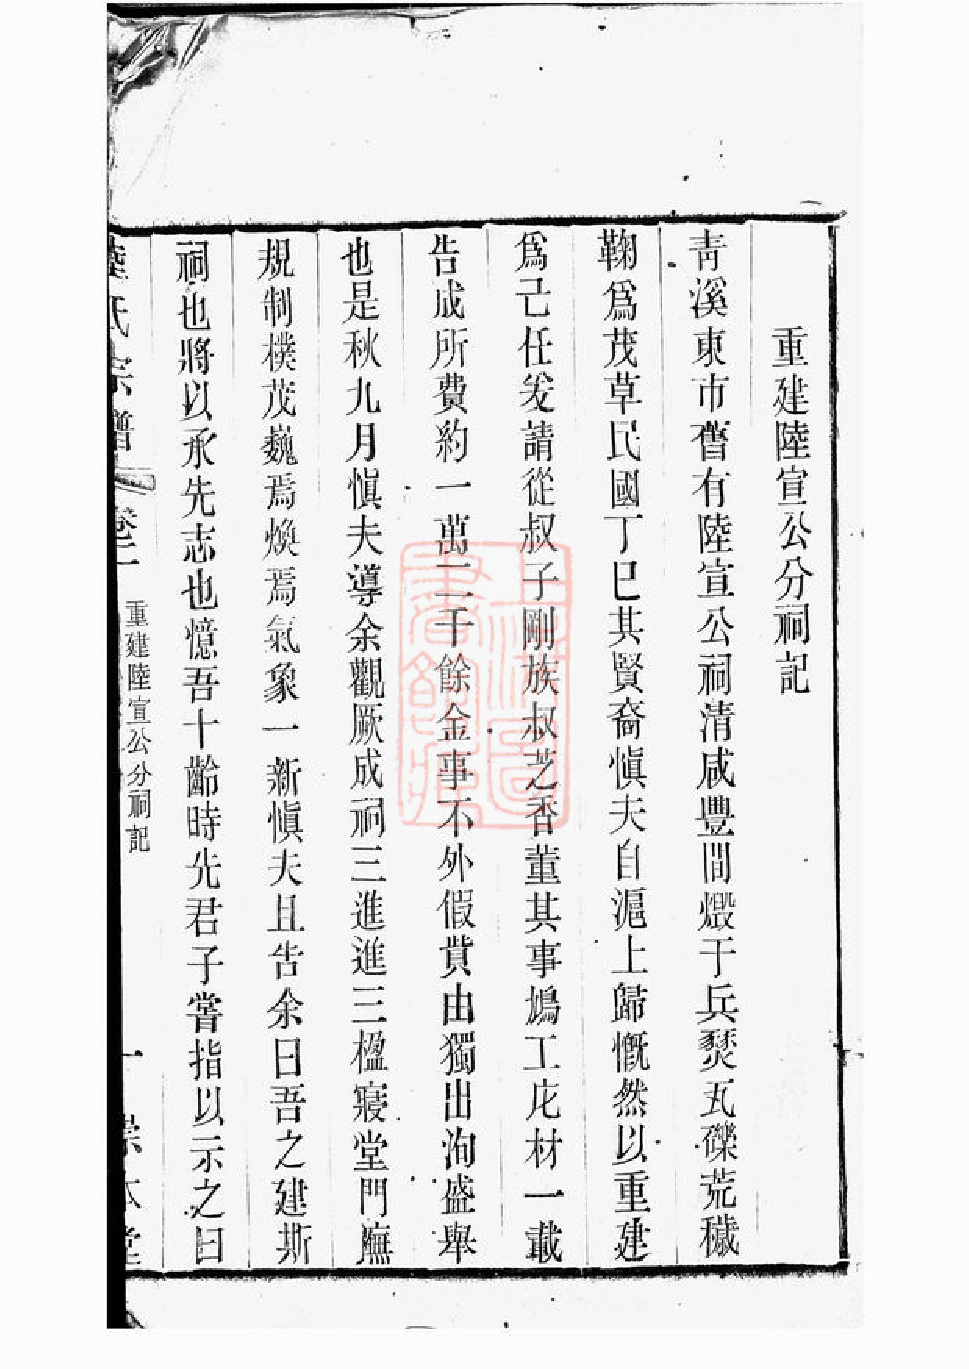 重建陸宣公分祠記
青溪東市舊有陸宣公祠清咸豐間燬于兵燹瓦礫荒穢
鞠爲茂草民國丁巳其賢裔愼夫自滬上歸慨然以重建
爲己任爰請從叔子剛族叔芝香董其事鳩工庀材一載
告成所費約一萬二千餘金事不外假貲由獨出洵盛舉
也是秋九月愼夫導余觀厥成祠三進進三楹寢堂門廡
規制樸茂巍焉煥焉氣象一新愼夫且告余曰吾之建斯
祠也將以承先志也憶吾十齡時先君子嘗指以示之曰
陸氏宗譜 卷二 重建陸宣公分祠記 一 崇本堂
上海圖書館藏